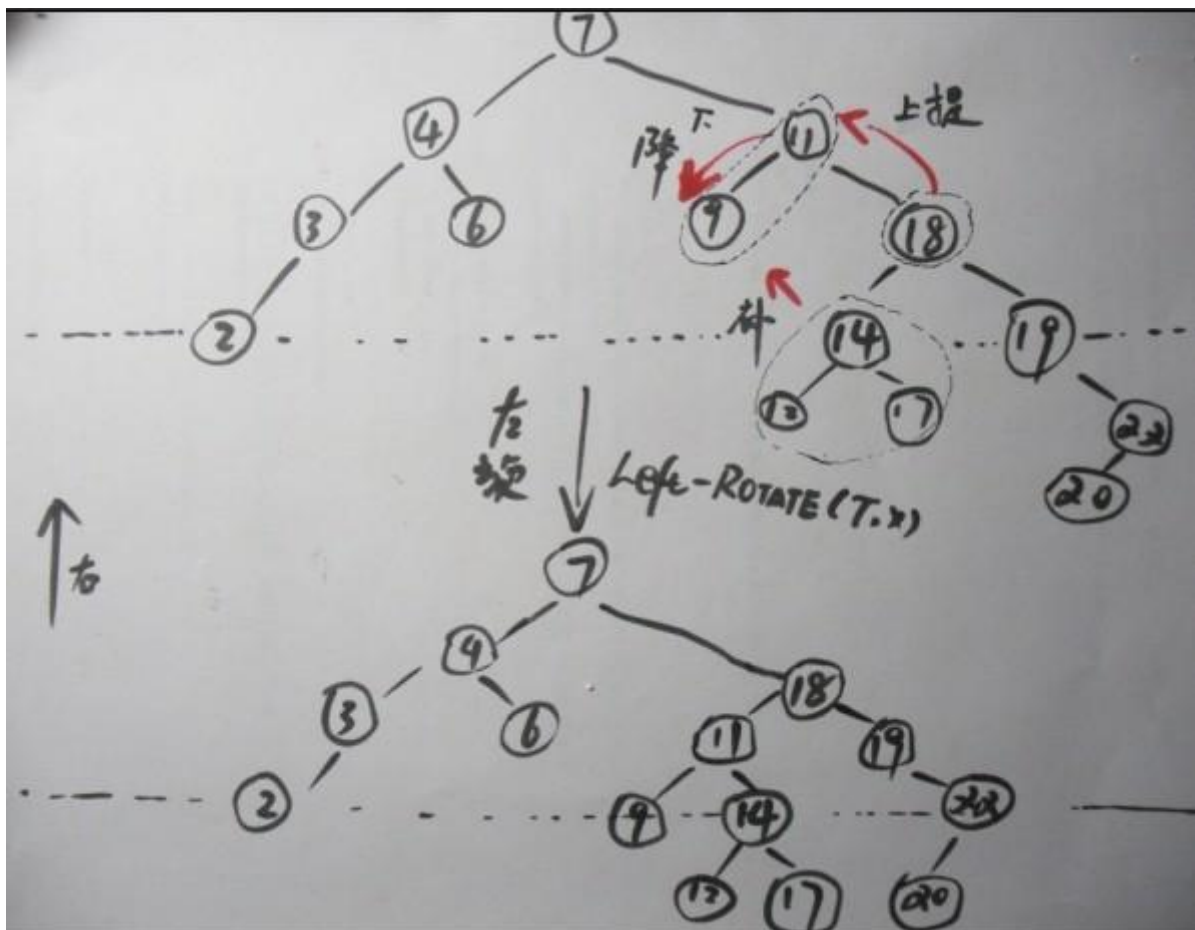 7
4 11 下 上提
降
3 6 9 18
补
2 14 19
12 17 22
20
左旋
Left-ROTATE(T.x)
右
7
4 18
3 6 11 19
2 9 14 22
12 17 20